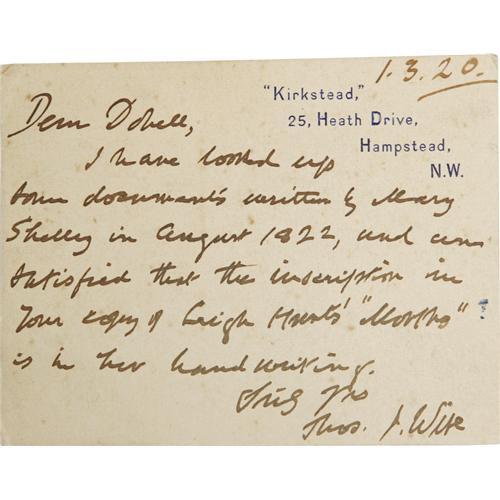 1.3.20.
"Kirkstead,"
25, Heath Drive,
Hampstead,
N.W.
Dear Dobell,
I have looked up
some documents written by Mary
Shelley in August 1822, and am
satisfied that the inscription in
your copy of Leigh Hunt's "Months"
is in her handwriting.
Truly yrs
Thos. J. Wise